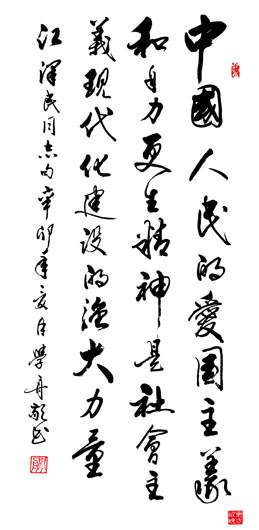 中國人民的愛国主義
和自力更生精神是社會主
義現代化建设的強大力量
江澤民同志句 辛卯年夏日學舟敬书